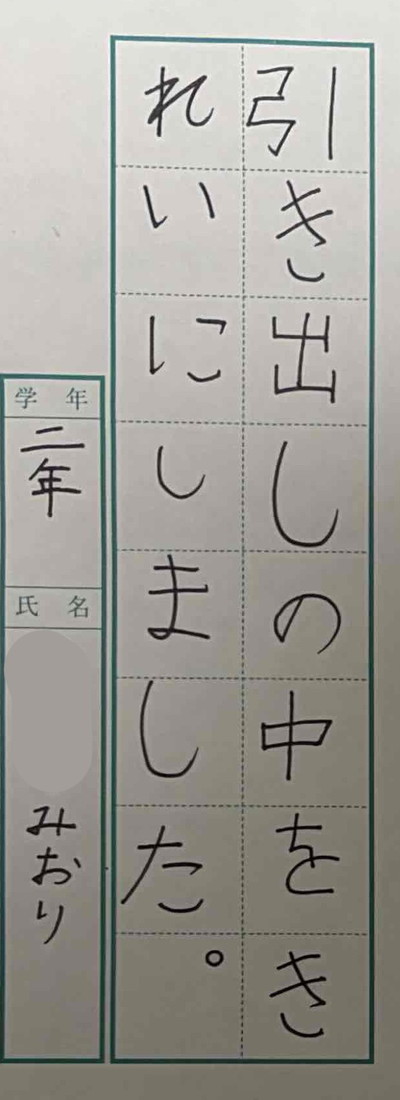 引き出しの中をき
れいにしました。
学年
二年
氏名
みおり